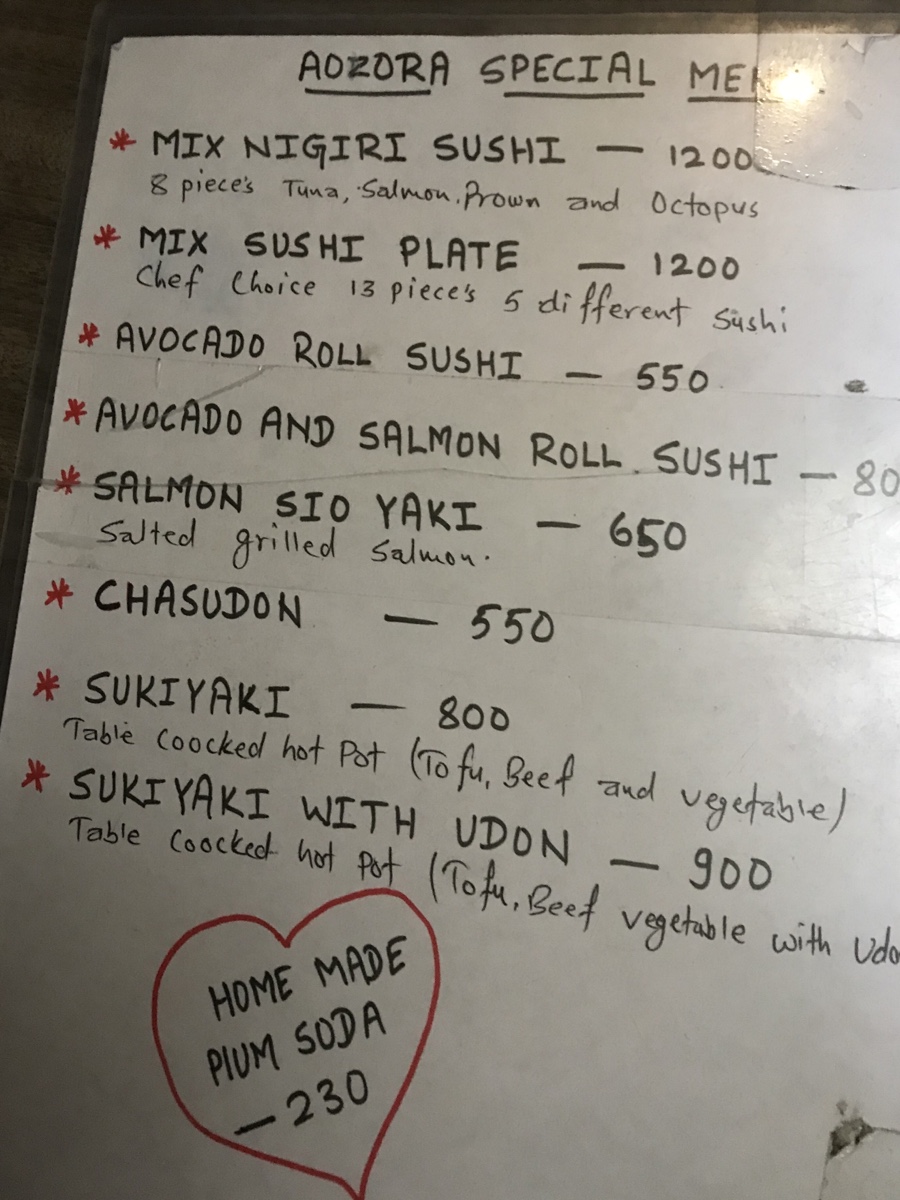 AOZORA SPECIAL
* MIX NIGIRI SUSHI — 1200
8 piece's Tuna, Salmon, Prown and Octopus
* MIX SUSHI PLATE — 1200
Chef Choice 13 piece's 5 different Sushi
* AVOCADO ROLL SUSHI — 550
* AVOCADO AND SALMON ROLL SUSHI — 80
* SALMON SIO YAKI — 650
Salted grilled Salmon.
* CHASUDON — 550
* SUKIYAKI — 800
Table Coocked hot Pot (Tofu, Beef and vegetable)
* SUKIYAKI WITH UDON — 900
Table Coocked hot Pot (Tofu, Beef vegetable with Udo
HOME MADE
PIUM SODA
— 230